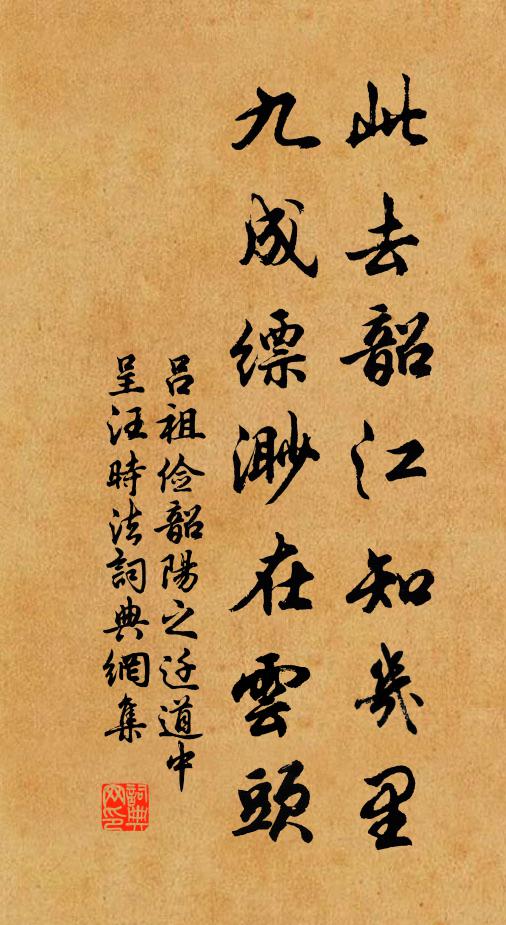 此去韶江知幾里
九成縹渺在雲頭
呂祖俭韶陽之迁道中
呈汪時法詞典網集
詞典网印